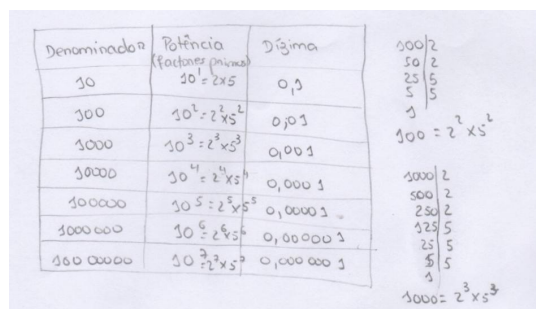 Denominador Potência (factores primos) Dízima
10 10¹ = 2x5 0,1
100 10² = 2²x5² 0,01
1000 10³ = 2³x5³ 0,001
10000 10⁴ = 2⁴x5⁴ 0,0001
100000 10⁵ = 2⁵x5⁵ 0,00001
1000000 10⁶ = 2⁶x5⁶ 0,000001
10000000 10⁷ = 2⁷x5⁷ 0,0000001
100 | 2
50 | 2
25 | 5
5 | 5
1
100 = 2² x 5²
1000 | 2
500 | 2
250 | 2
125 | 5
25 | 5
5 | 5
1
1000 = 2³ x 5³